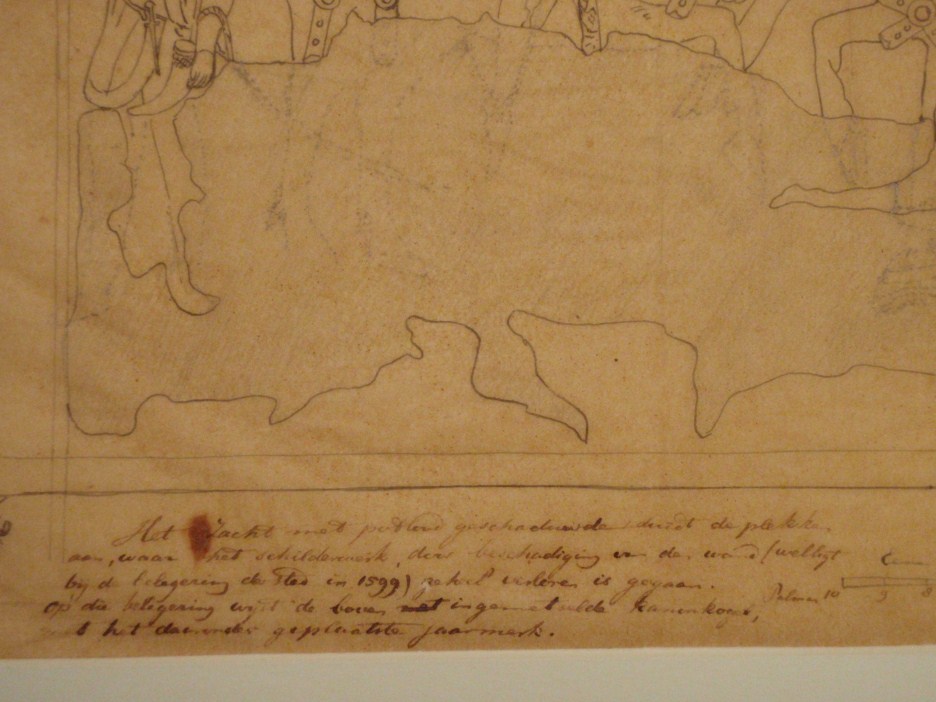 Het zacht met potlood geschaduwde duidt de plekken
aan, waar het schilderwerk, door beschadiging van de wand (wellicht
bij de belegering der stad in 1599) geheel verloren is gegaan.
Op die belegering wijst de boven ingemetselde kanonkogel,
met het daaronder geplaatste jaarmerk.
Palmen 10 5 0